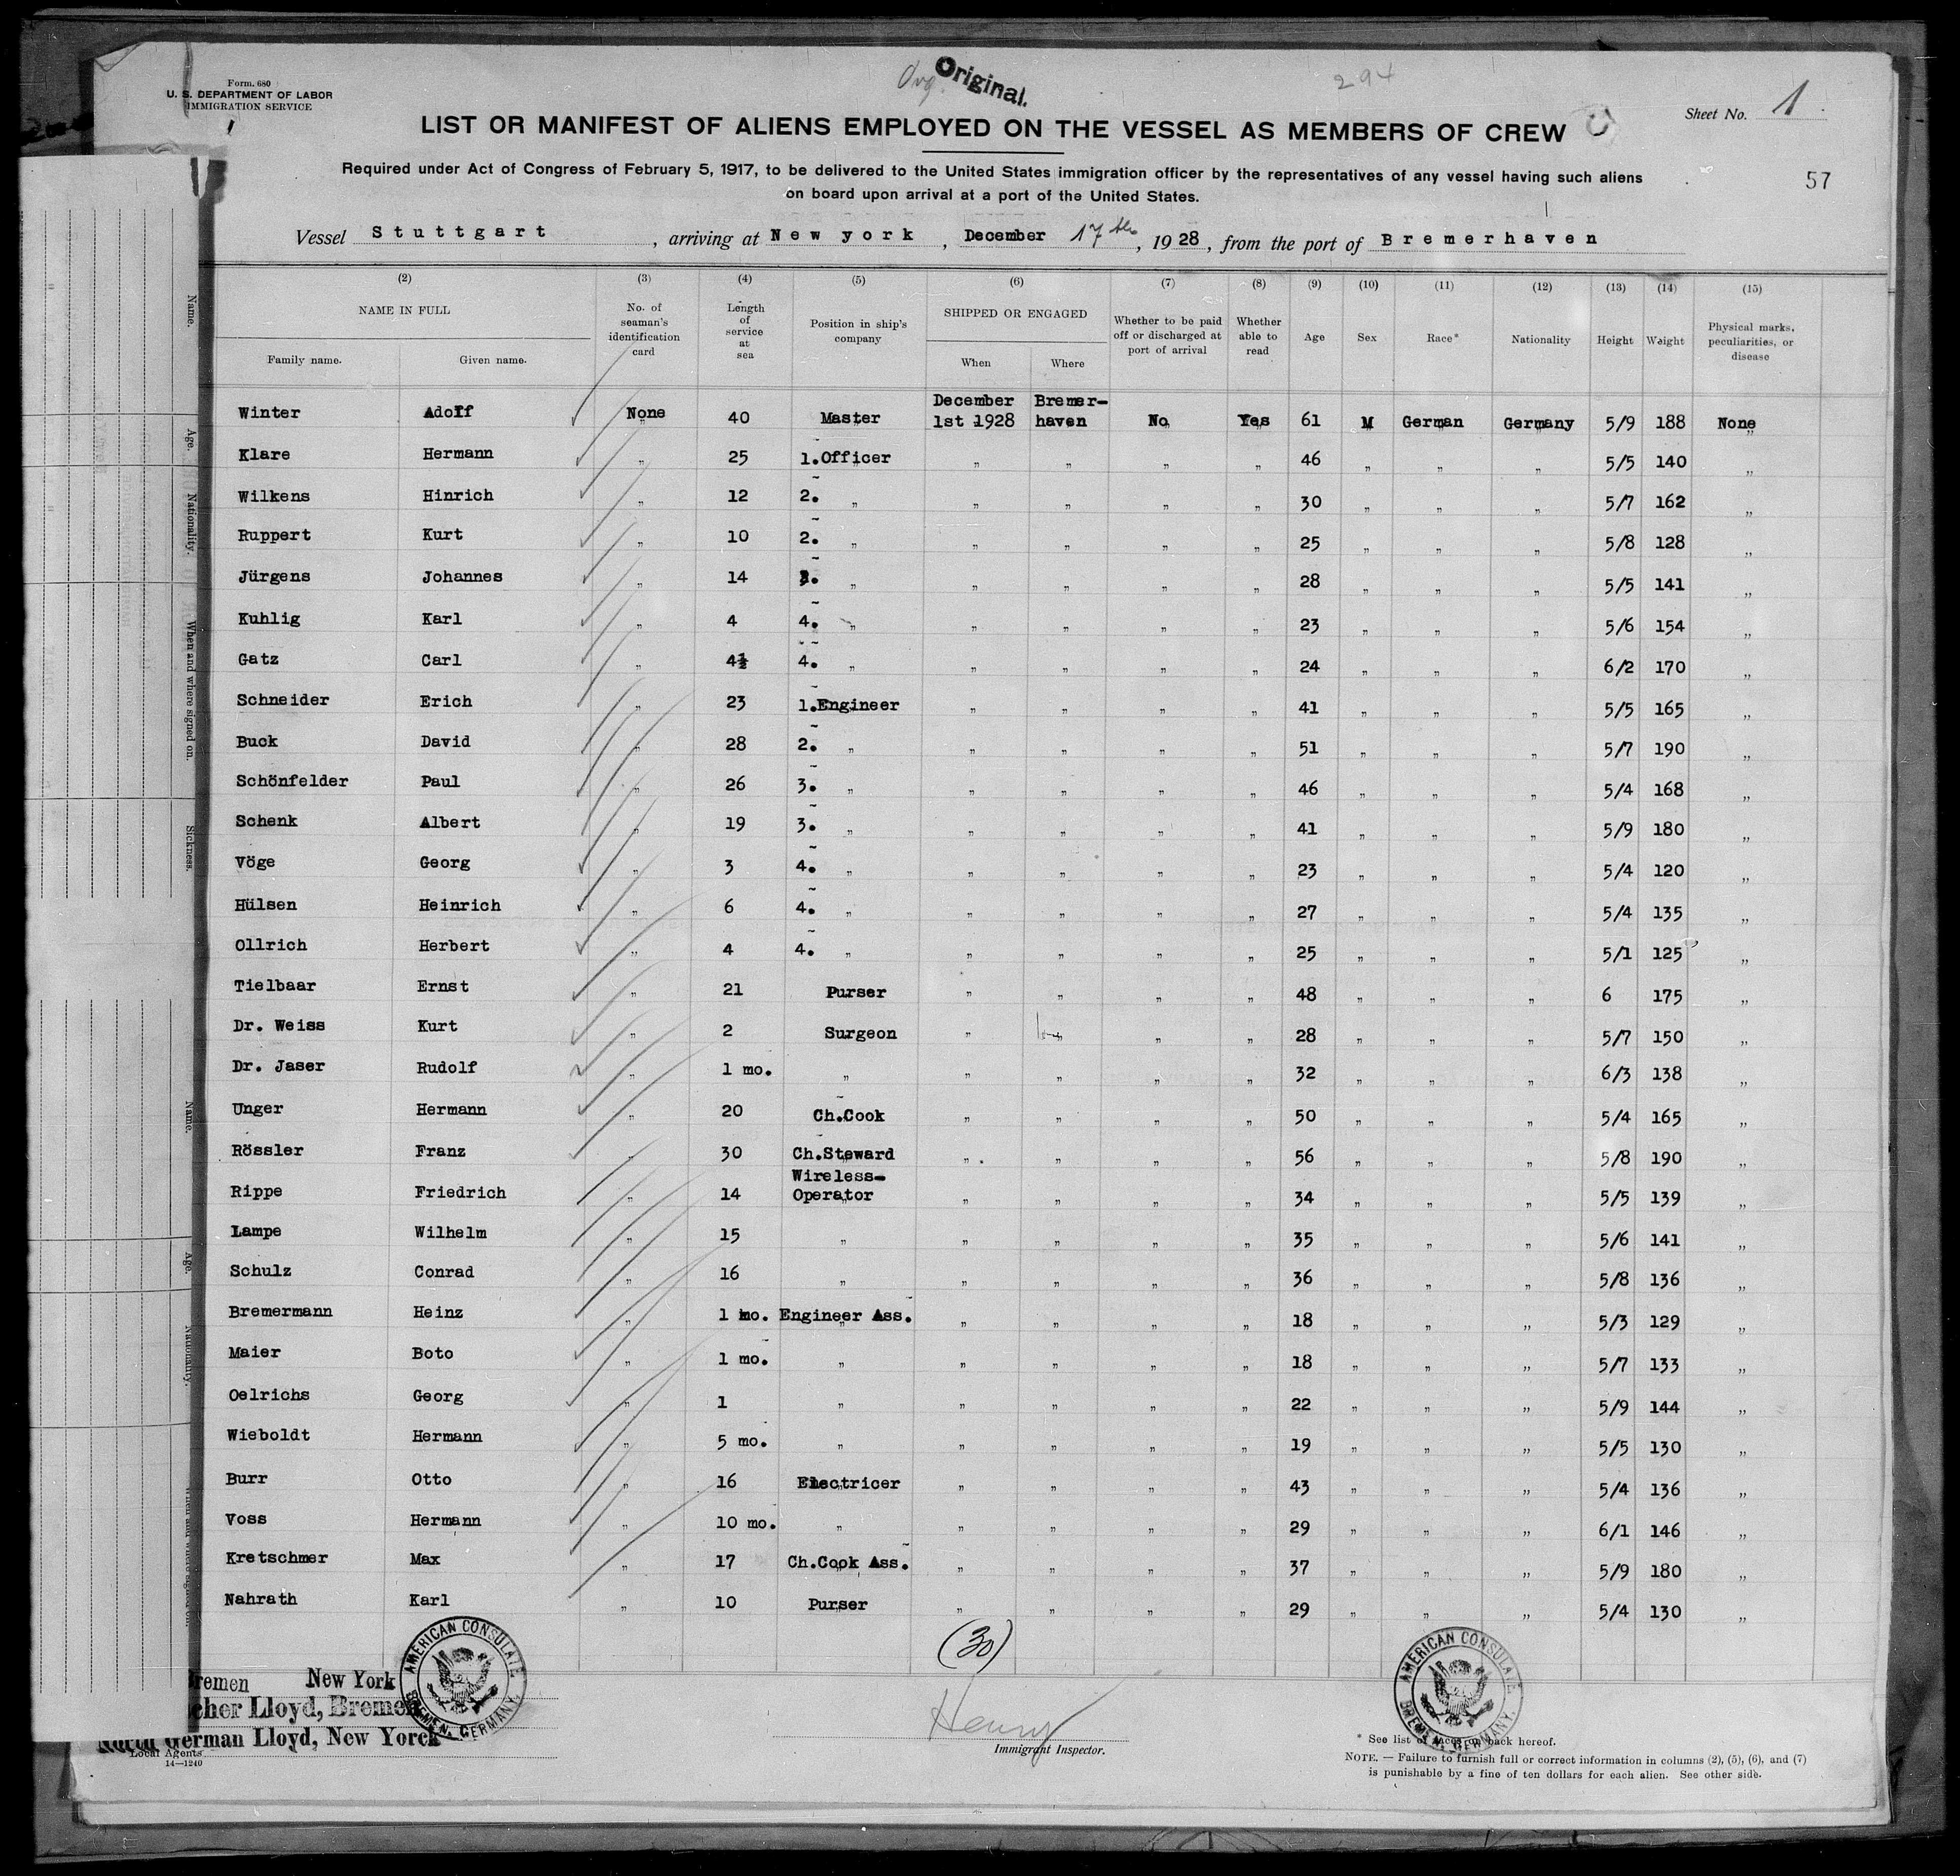 Form. 680
U. S. DEPARTMENT OF LABOR
IMMIGRATION SERVICE
Org. Original.
294
Sheet No. 1
LIST OR MANIFEST OF ALIENS EMPLOYED ON THE VESSEL AS MEMBERS OF CREW
Required under Act of Congress of February 5, 1917, to be delivered to the United States immigration officer by the representatives of any vessel having such aliens
on board upon arrival at a port of the United States.
57
Vessel Stuttgart, arriving at New york, December 17th, 1928, from the port of Bremerhaven
(2) (3) (4) (5) (6) (7) (8) (9) (10) (11) (12) (13) (14) (15)
NAME IN FULL
Family name. Given name.
No. of seaman's identification card
Length of service at sea
Position in ship's company
SHIPPED OR ENGAGED
When Where
Whether to be paid off or discharged at port of arrival
Whether able to read
Age Sex Race* Nationality Height Weight
Physical marks, peculiarities, or disease
Winter Adolf None 40 Master December 1st 1928 Bremer-haven No Yes 61 M German Germany 5/9 188 None
Klare Hermann „ 25 1.Officer „ „ „ „ 46 „ „ „ 5/5 140 „
Wilkens Hinrich „ 12 2. „ „ „ „ „ 30 „ „ „ 5/7 162 „
Ruppert Kurt „ 10 2. „ „ „ „ „ 25 „ „ „ 5/8 128 „
Jürgens Johannes „ 14 „ „ „ „ „ 28 „ „ „ 5/5 141 „
Kuhlig Karl „ 4 4. „ „ „ „ „ 23 „ „ „ 5/6 154 „
Gatz Carl „ 4½ 4. „ „ „ „ „ 24 „ „ „ 6/2 170 „
Schneider Erich „ 23 1.Engineer „ „ „ „ 41 „ „ „ 5/5 165 „
Buck David „ 28 2. „ „ „ „ „ 51 „ „ „ 5/7 190 „
Schönfelder Paul „ 26 3. „ „ „ „ „ 46 „ „ „ 5/4 168 „
Schenk Albert „ 19 3. „ „ „ „ „ 41 „ „ „ 5/9 180 „
Vöge Georg „ 3 4. „ „ „ „ „ 23 „ „ „ 5/4 120 „
Hülsen Heinrich „ 6 4. „ „ „ „ „ 27 „ „ „ 5/4 135 „
Ollrich Herbert „ 4 4. „ „ „ „ „ 25 „ „ „ 5/1 125 „
Tielbaar Ernst „ 21 Purser „ „ „ „ 48 „ „ „ 6 175 „
Dr. Weiss Kurt „ 2 Surgeon „ „ „ „ 28 „ „ „ 5/7 150 „
Dr. Jaser Rudolf „ 1 mo. „ „ „ „ „ 32 „ „ „ 6/3 138 „
Unger Hermann „ 20 Ch.Cook „ „ „ „ 50 „ „ „ 5/4 165 „
Rössler Franz „ 30 Ch.Steward „ „ „ „ 56 „ „ „ 5/8 190 „
Rippe Friedrich „ 14 Wireless-Operator „ „ „ „ 34 „ „ „ 5/5 139 „
Lampe Wilhelm „ 15 „ „ „ „ „ 35 „ „ „ 5/6 141 „
Schulz Conrad „ 16 „ „ „ „ „ 36 „ „ „ 5/8 136 „
Bremermann Heinz „ 1 mo. Engineer Ass. „ „ „ „ 18 „ „ „ 5/3 129 „
Maier Boto „ 1 mo. „ „ „ „ „ 18 „ „ „ 5/7 133 „
Oelrichs Georg „ 1 „ „ „ „ „ 22 „ „ „ 5/9 144 „
Wieboldt Hermann „ 5 mo. „ „ „ „ „ 19 „ „ „ 5/5 130 „
Burr Otto „ 16 Electricer „ „ „ „ 43 „ „ „ 5/4 136 „
Voss Hermann „ 10 mo. „ „ „ „ „ 29 „ „ „ 6/1 146 „
Kretschmer Max „ 17 Ch.Cook Ass. „ „ „ „ 37 „ „ „ 5/9 180 „
Nahrath Karl „ 10 Purser „ „ „ „ 29 „ „ „ 5/4 130 „
(30)
Bremen New York
Lloyd, Bremen
North German Lloyd, New Yorck
Local Agents
14—1240
AMERICAN CONSULATE, BREMEN, GERMANY.
Henry
Immigrant Inspector.
AMERICAN CONSULATE, BREMEN, GERMANY.
* See list of races on back hereof.
NOTE. — Failure to furnish full or correct information in columns (2), (5), (6), and (7)
is punishable by a fine of ten dollars for each alien. See other side.
Name.
Age.
Nationality.
When and where signed on.
Sickness.
Name.
Age.
Nationality.